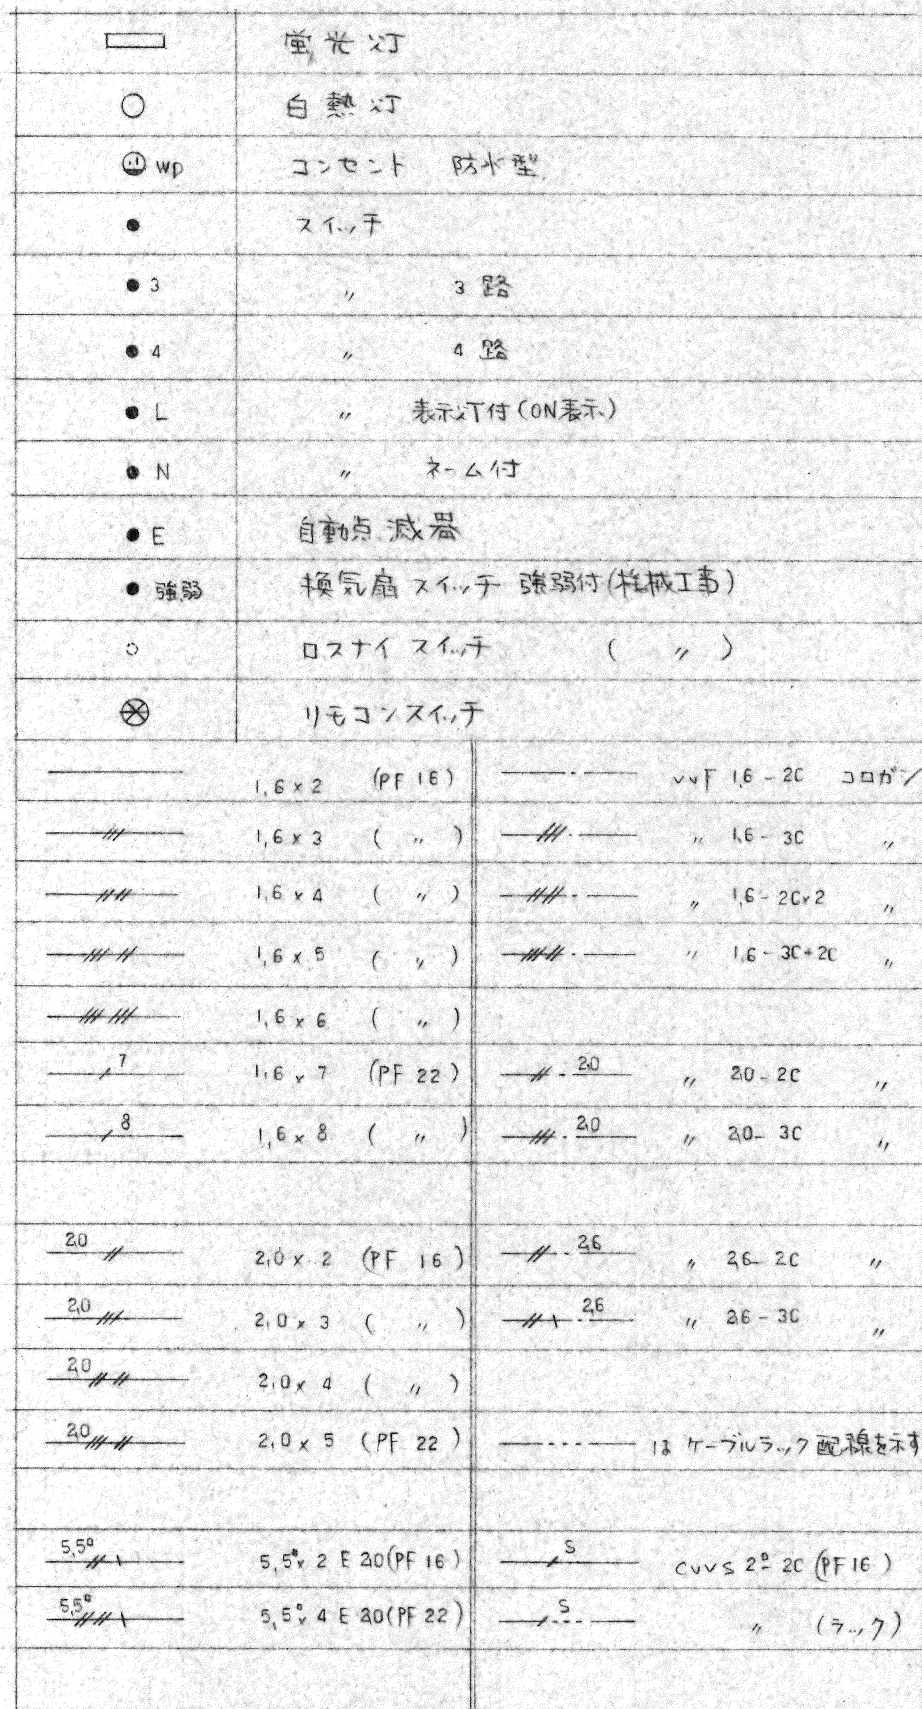 蛍光灯
白熱灯
WP コンセント 防水型
スイッチ
3 〃 3路
4 〃 4路
L 〃 表示灯付(ON表示)
N 〃 ネーム付
E 自動点滅器
強弱 換気扇スイッチ 強弱付(機械工事)
ロスナイスイッチ ( 〃 )
リモコンスイッチ
1,6×2 (PF 16) VVF 1,6-2C コロガシ
1,6×3 ( 〃 ) 〃 1,6-3C 〃
1,6×4 ( 〃 ) 〃 1,6-2C×2 〃
1,6×5 ( 〃 ) 〃 1,6-3C+2C 〃
1,6×6 ( 〃 )
7 1,6×7 (PF 22) 2,0 〃 2,0-2C 〃
8 1,6×8 ( 〃 ) 2,0 〃 2,0-3C 〃
2,0 2,0×2 (PF 16) 2,6 〃 2,6-2C 〃
2,0 2,0×3 ( 〃 ) 2,6 〃 2,6-3C 〃
2,0 2,0×4 ( 〃 )
2,0 2,0×5 (PF 22) は ケーブルラック配線を示す
5,5° 5,5°×2 E 2,0(PF 16) S CVVS 2°-2C (PF 16)
5,5° 5,5°×4 E 2,0(PF 22) S 〃 (ラック)